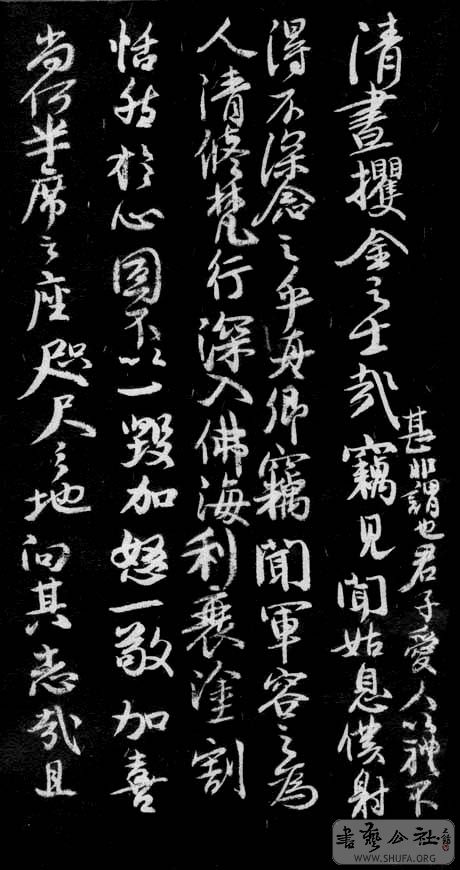 清晝攫金之士哉竊見聞姑息僕射
甚非謂也君子愛人以禮不
得不深念之乎真卿竊聞軍容之為
人清修梵行深入佛海利衰塗割
恬然於心固不以一毀加怒一敬加喜
尚何半席之座咫尺之地汩其志哉且
書藝公社
WWW.SHUFA.ORG